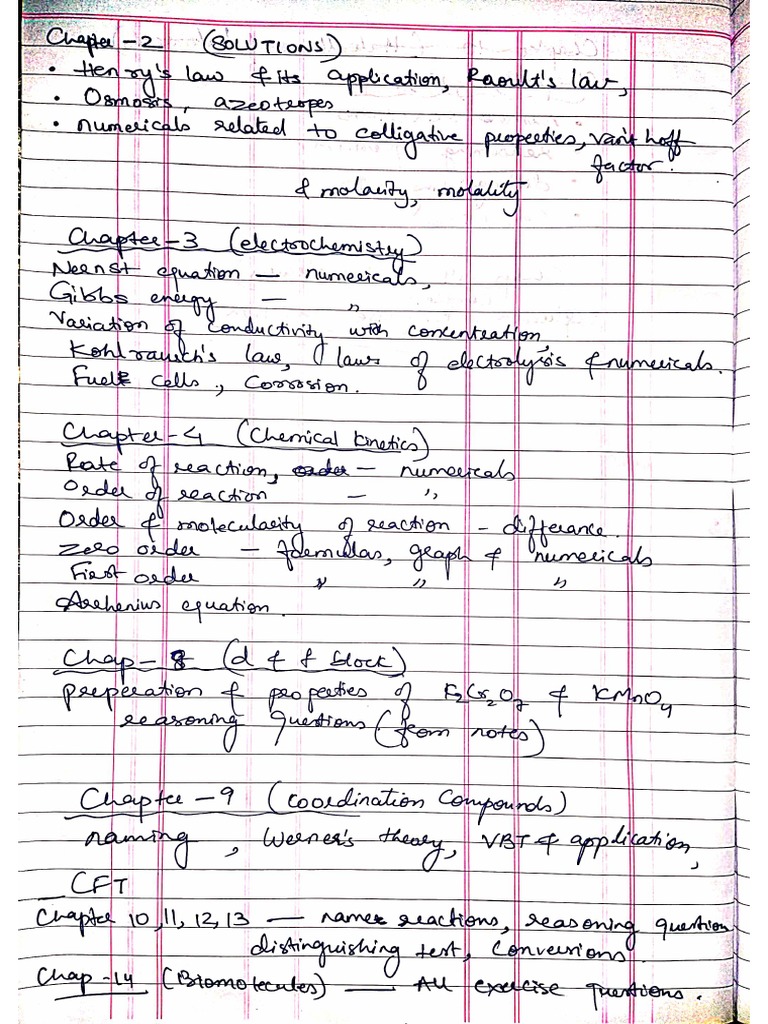 Chapter - 2 (SOLUTIONS)
• Henry's law & its application, Raoult's law,
• Osmosis, azeotropes.
• numericals related to colligative properties, van't hoff
factor.
& molarity, molality
Chapter - 3 (electrochemistry)
Nernst equation — numericals,
Gibbs energy — "
Variation of conductivity with concentration,
Kohlrausch's law, laws of electrolysis & numericals.
Fuel cells, Corrosion.
Chapter - 4 (Chemical kinetics)
Rate of reaction, order — numericals
Order of reaction — "
Order & molecularity of reaction - differance.
Zero order — formulas, graph & numericals
First order " " "
Arrhenius equation.
Chap - 8 (d & f block)
preperation & properties of K2Cr2O7 & KMnO4
reasoning questions (from notes)
Chapter - 9 (coordination compounds)
naming, Werner's theory, VBT & application,
CFT
Chapter 10, 11, 12, 13 — name reactions, reasoning question
distinguishing test, conversions.
Chap - 14 (Biomolecules) — All exercise questions.